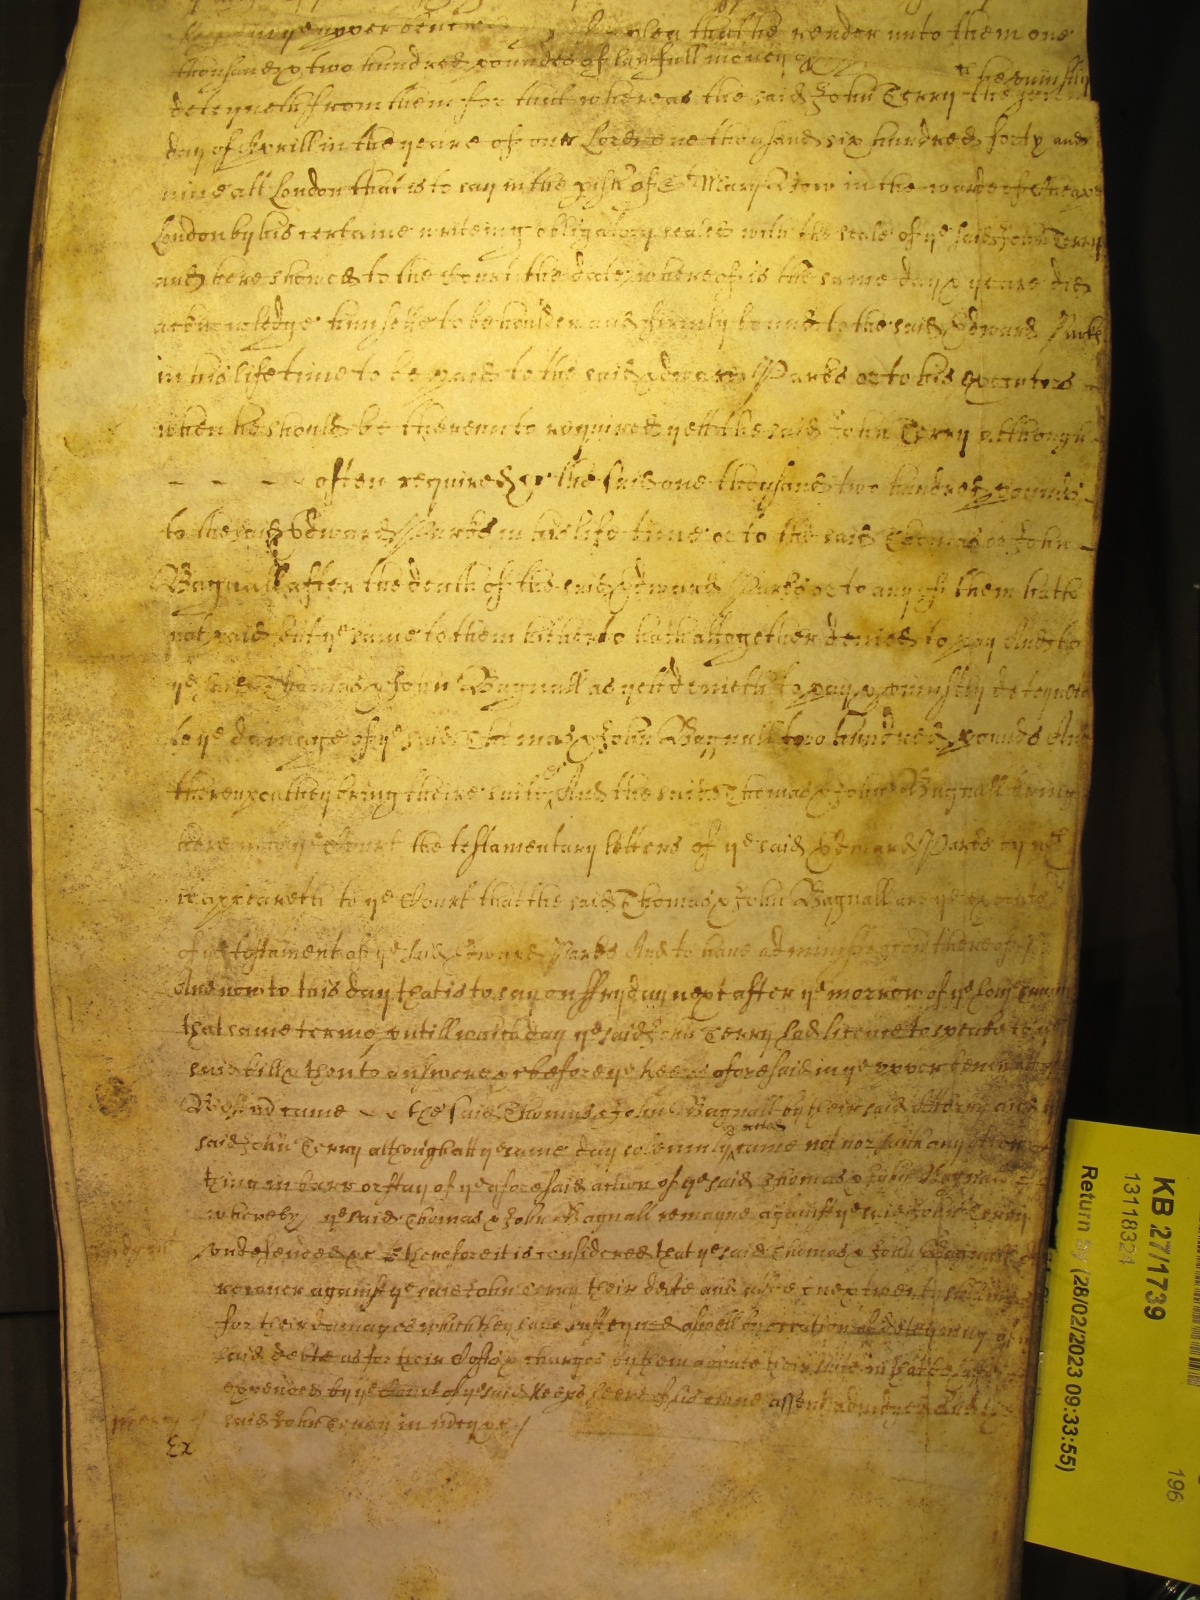 in ye upper bench of a plea that he render unto them one
thousand & two hundred poundes of lawfull money &
deteyneth from them for that whereas the said John Terry the
day of Aprill in the yeare of our Lord one thousand six hundred forty and
nine att London that is to say in the pish of St Mary Bow in the warde of Cheape
London by his certaine writeing obligatory sealed with the seale of ye said John Terry
and here shewed to the Court the date whereof is the same day & yeare did
acknowledge himselfe to be houlden and firmly bound to the said Edward Parks
in his life time to be paid to the said Edward Parks or to his executors
when he should be thereunto required yett the said John Terry although
- - - - often required &c the said one thousand two hundred pounds
to the said Edward Parks in his life time or to the said Thomas or John
Bagnall after the death of the said Edward Parks or to any of them hath
not paid but ye same to them hitherto hath altogether denied to pay And to
ye said Thomas & John Bagnall as yett denieth to pay & uniustly deteyneth
to ye damage of ye said Thomas & John Bagnall two hundred pounds And
thereupon they bring theire suite &c And the said Thomas & John Bagnall bring
here into ye Court the testamentary letters of ye said Edward Parks by wch
it appeareth to ye Court that the said Thomas & John Bagnall are ye executors
of ye testament of ye said Edward Parks And to have administracon thereof &c
And now to this day that is to say on Fryday next after ye morrow of ye holy
that same terme untill which day ye said John Terry had licence to speake to ye
said bill & then to answere &c before ye Keepers aforesaid in ye upper bench att
came - - the said Thomas & John Bagnall by their said Attorny and ye
said John Terry although att ye same day solemnly exacted came not nor saith any thing
thing in barr or stay of ye aforesaid action of ye said Thomas & John Bagnall
whereby ye said Thomas & John Bagnall remayne against ye said John Terry
undefended &c Therefore it is considered that ye said Thomas & John Bagnall
recover against ye said John Terry their debt and alsoe twenty shillings
for their damages which they have susteyned aswell by occasion of deteyning of ye
said debte as for their Costs & charges by them aboute their suite in that behalfe
expended by ye Court of ye said Keeps heere of his owne assent adiudged And ye
said John Terry in mercy &c
Ex
KB 27/1739
13118324
Return by (28/02/2023 09:33:55)
196